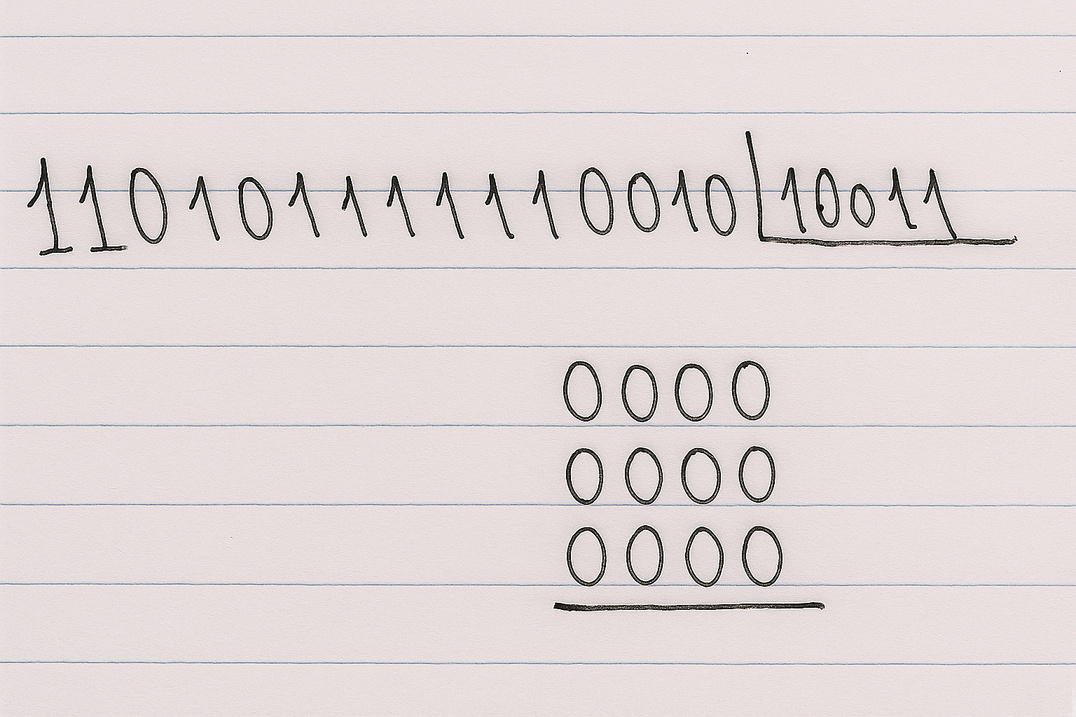 110101111110010 10011
0000
0000
0000